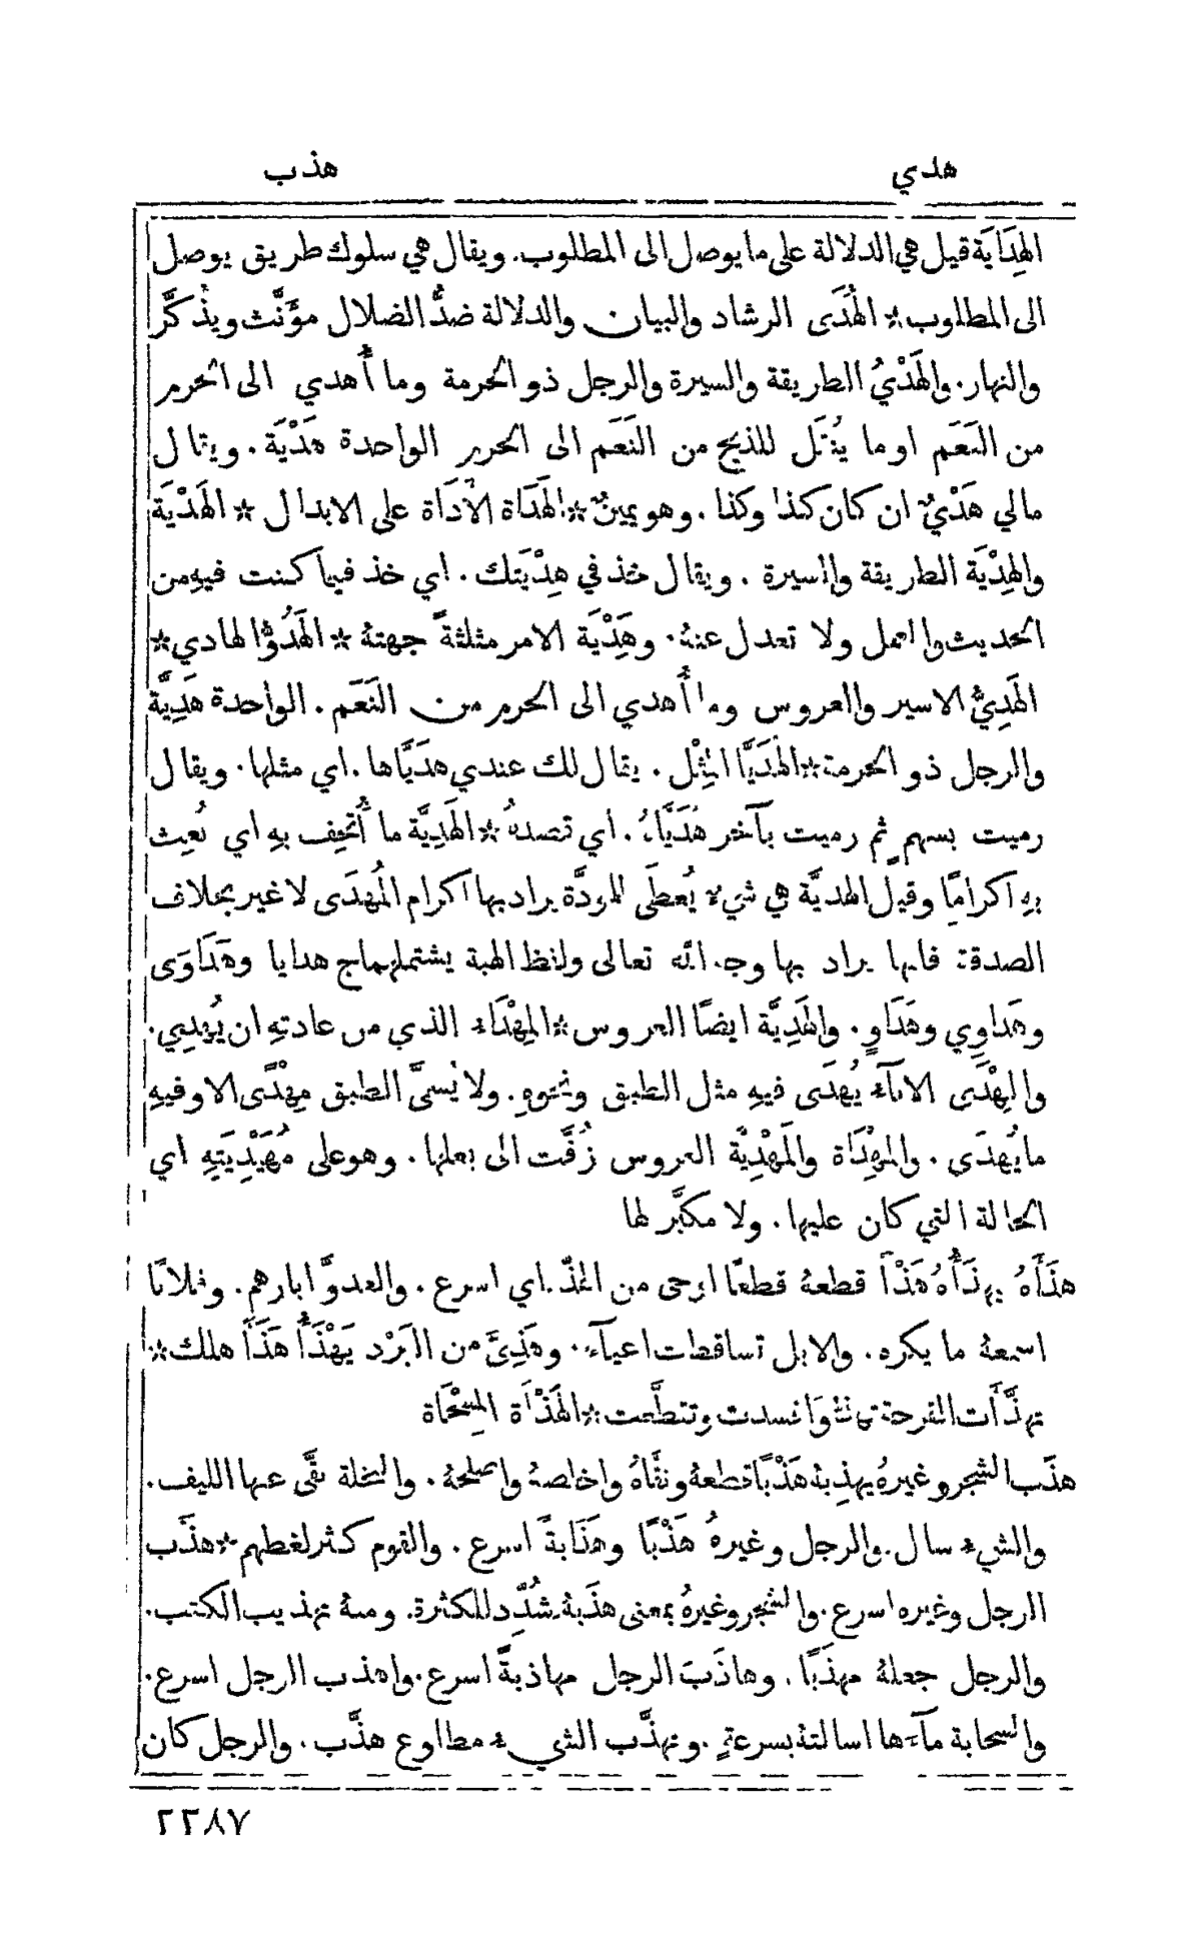 هدي
هذب
الهِدَايَة قيل هي الدلالة على ما يوصل الى المطلوب. ويقال هي سلوك طريق يوصل
الى المطلوب * الهُدَى الرشاد والبيان والدلالة ضدُّ الضلال مؤَنَّث ويذُكَّر
والنهار. والهَدْيُ الطريقة والسيرة والرجل ذو الحرمة وما أُهدي الى الحَرم
من النَعَم او ما يُنقَل للذبح من النَعَم الى الحرم الواحدة هَدْيَة. ويقال
مالي هَدْيٌ ان كان كذا وكذا. وهو يمينٌ * الهَدَاة الأَدَاة على الابدال * الهَدْيَة
والهِدْيَة الطريقة والسيرة. ويقال خذ في هِدْيَتك. اي خذ فيما كنت فيهِ من
الحديث والعمل ولا تعدل عنهُ. وهَِدْيَة الامر مثلثةً جهتهُ * الهَدُوُّ الهادي *
الهَدِيُّ الاسير والعروس وما أُهدي الى الحرم من النَعَم. الواحدة هَدِيَّة
والرجل ذو الحرمة * الهُدَيَّا المِثْل. يقال لك عندي هدَيَّاها. اي مثلها. ويقال
رميت بسهمٍ ثم رميت بآخر هُدَيَّاهُ. اي قصدهُ * الهَدِيَّة ما أُتحِف بهِ اي بُعِث
بهِ اكرامًا وقيل الهديَّة هي شيءٌ يُعطَى للمودَّة يراد بها اكرام المُهدَى لا غير بخلاف
الصدقة فانها يراد بها وجه الله تعالى ولفظ الهبة يشتملهما ج هدايا وهَدَاوَى
وهَداوِي وهَدَاوٍ. والهَدِيَّة ايضًا العروس * المِهْدَاء الذي من عادتهِ ان يُهدِي.
والمِهْدَى الاناءُ يُهدَى فيهِ مثل الطبق ونحوهِ. ولا يُسمَّى الطبق مِهْدًى الا وفيهِ
ما يُهدَى. والمُهْدَاة والمَهْدِيَّة العروس زُفَّت الى بعلها. وهو على مُهَيْدِيَتِهِ اي
الحالة التي كان عليها. ولا مكبَّر لها
هذَأَهُ يهذَأُهُ هَذْأً قطعهُ قطعًا اوحى من الهذّ. اي اسرع. والعدوَّ ابارهم. وفلانًا
اسمعهُ ما يكره. والابل تساقطت اعياءً. وهَذِئَ من البَرْد يَهْذَأُ هَذَأً هلك *
تهذَّأت القرحة تهذُّؤًا فسدت وتقطَّعت * الهَذْأَة المِسْحَاة
هذَب الشجر وغيرهُ يهذِبهُ هَذْبًا قطعهُ ونقَّاهُ واخلصهُ واصلحهُ. والنخلة نقَّى عنها الليف.
والشيءُ سال. والرجل وغيرهُ هَذْبًا وهَذَابةً اسرع. والقوم كثر لغطهم * هذَّب
الرجل وغيره اسرع. والشجر وغيرهُ بمعنى هذَبهُ شُدِّد للكثرة. ومنهُ تهذيب الكتب.
والرجل جعلهُ مهذَّبًا. وهاذَبَ الرجل مهاذبةً اسرع. واهذب الرجل اسرع.
والسحابة مآءَها اسالتهُ بسرعةٍ. وتهذَّب الشيءُ مطاوع هذَّب. والرجل كان
٢٢٨٧